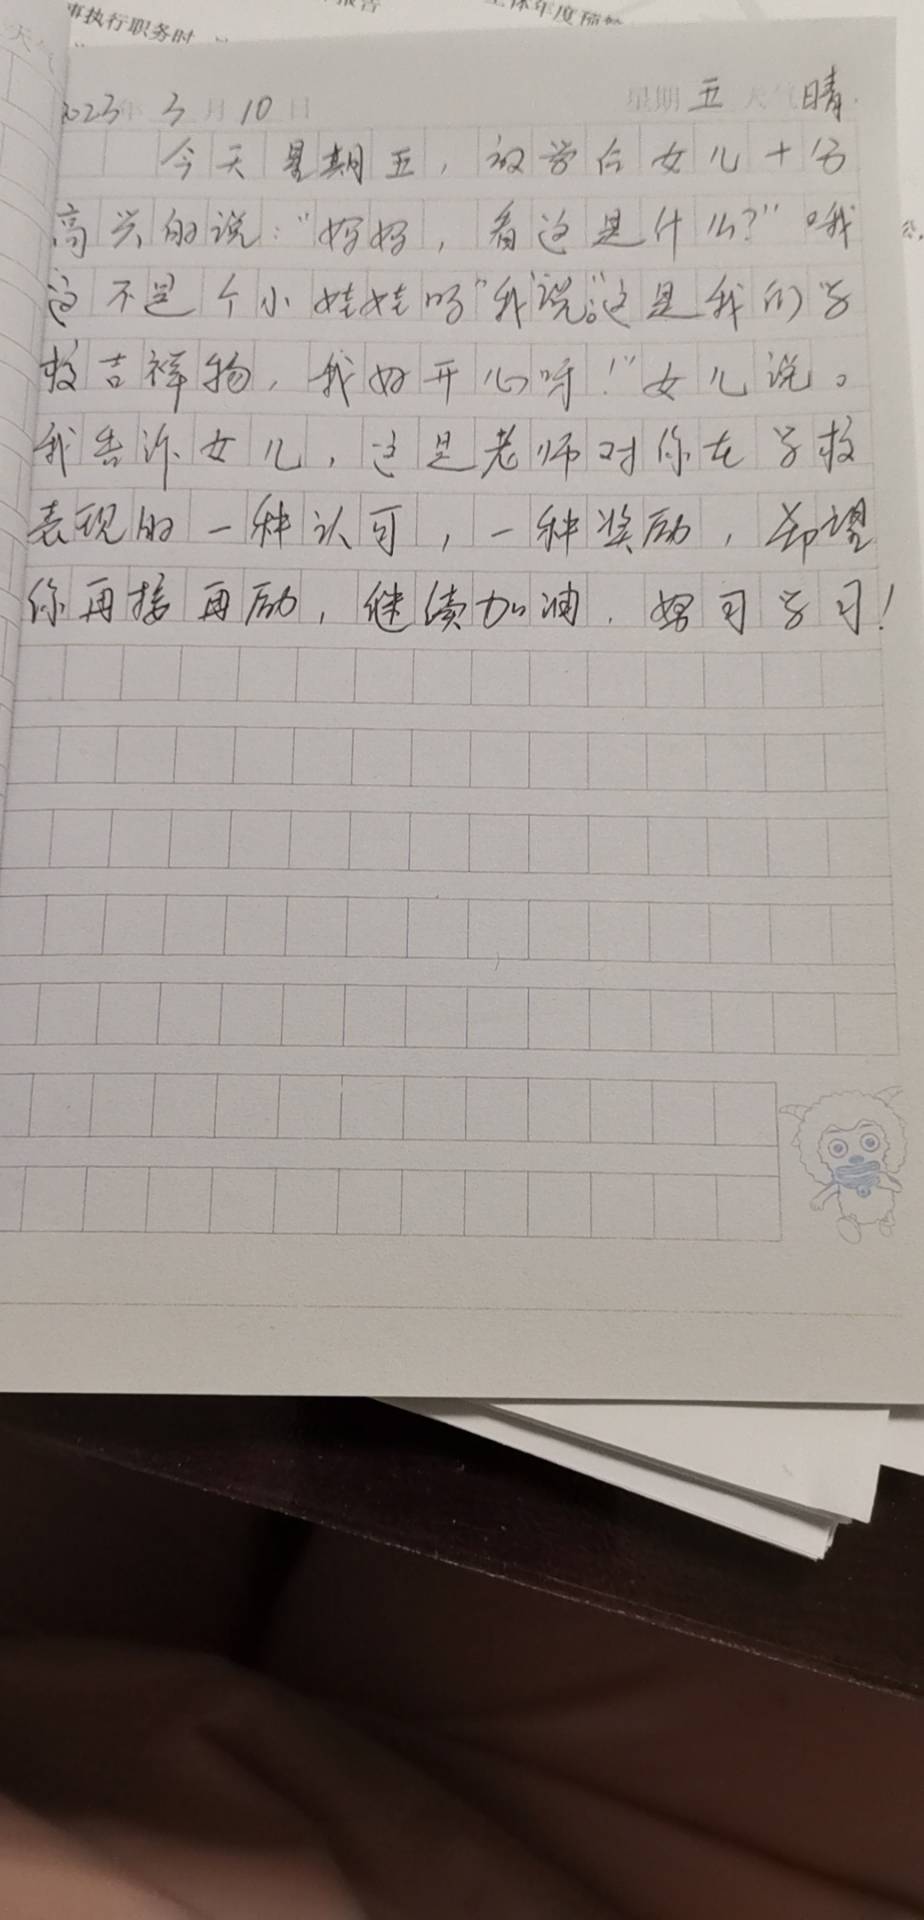 事执行职务时
报告
主体年度预
天气
2023年 3月10日 星期五 天气晴.
今天星期五，放学后女儿十分
高兴的说："妈妈，看这是什么？"哦
这不是个小娃娃吗"我说。"这是我们学
校吉祥物，我好开心呀！"女儿说。
我告诉女儿，这是老师对你在学校
表现的一种认可，一种奖励，希望
你再接再励，继续加油．努习学习！